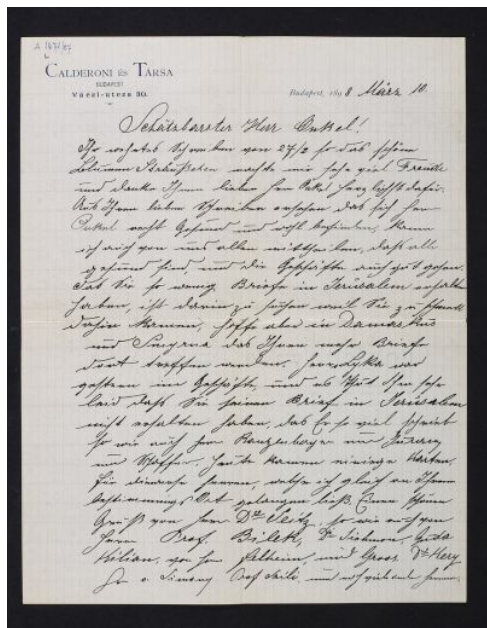 CALDERONI ÉS TÁRSA
BUDAPEST
Váczi-utcza 30.
Budapest, 1898 März 10.
Schätzbarster Herr Onkel!
Ihr Schreiben von 27/2 so das schöne
machte mir sehr viel Freude
und danke Ihnen lieber Herr Onkel herzlichst dafür.
Aus Ihrem lieben Schreiben ersehen das sich Herr
Onkel recht Gesund und wohl befinden, kann
ich auch von uns allen mittheilen, daß alle
gesund sind, und die Geschäfte auch gut gehen.
Das Sie so wenig Briefe in Jerusalem erhalten
haben, ist darin zu suchen weil Sie zu schnell
dahin kamen, hoffe aber in Damaskus
und Smyrna das Ihnen mehr Briefe
dort treffen werden. Herr war
gestern im Geschäfte, und es thut Ihm sehr
leid daß Sie seinen Brief in Jerusalem
nicht erhalten haben, das Er so viel schreibt
so wie auch Herr und
und Heute kamen einige Karten.
für Herren, welche ich gleich an Ihrem
bestimmungs Ort gelangen ließ. Einen schönen
Gruß von Herr Dr Seitz, so wie auch von
Herrn Prof. Bilek, Dr
Kilian, von Herrn und Dr
Prof und noch viele andere Herren.